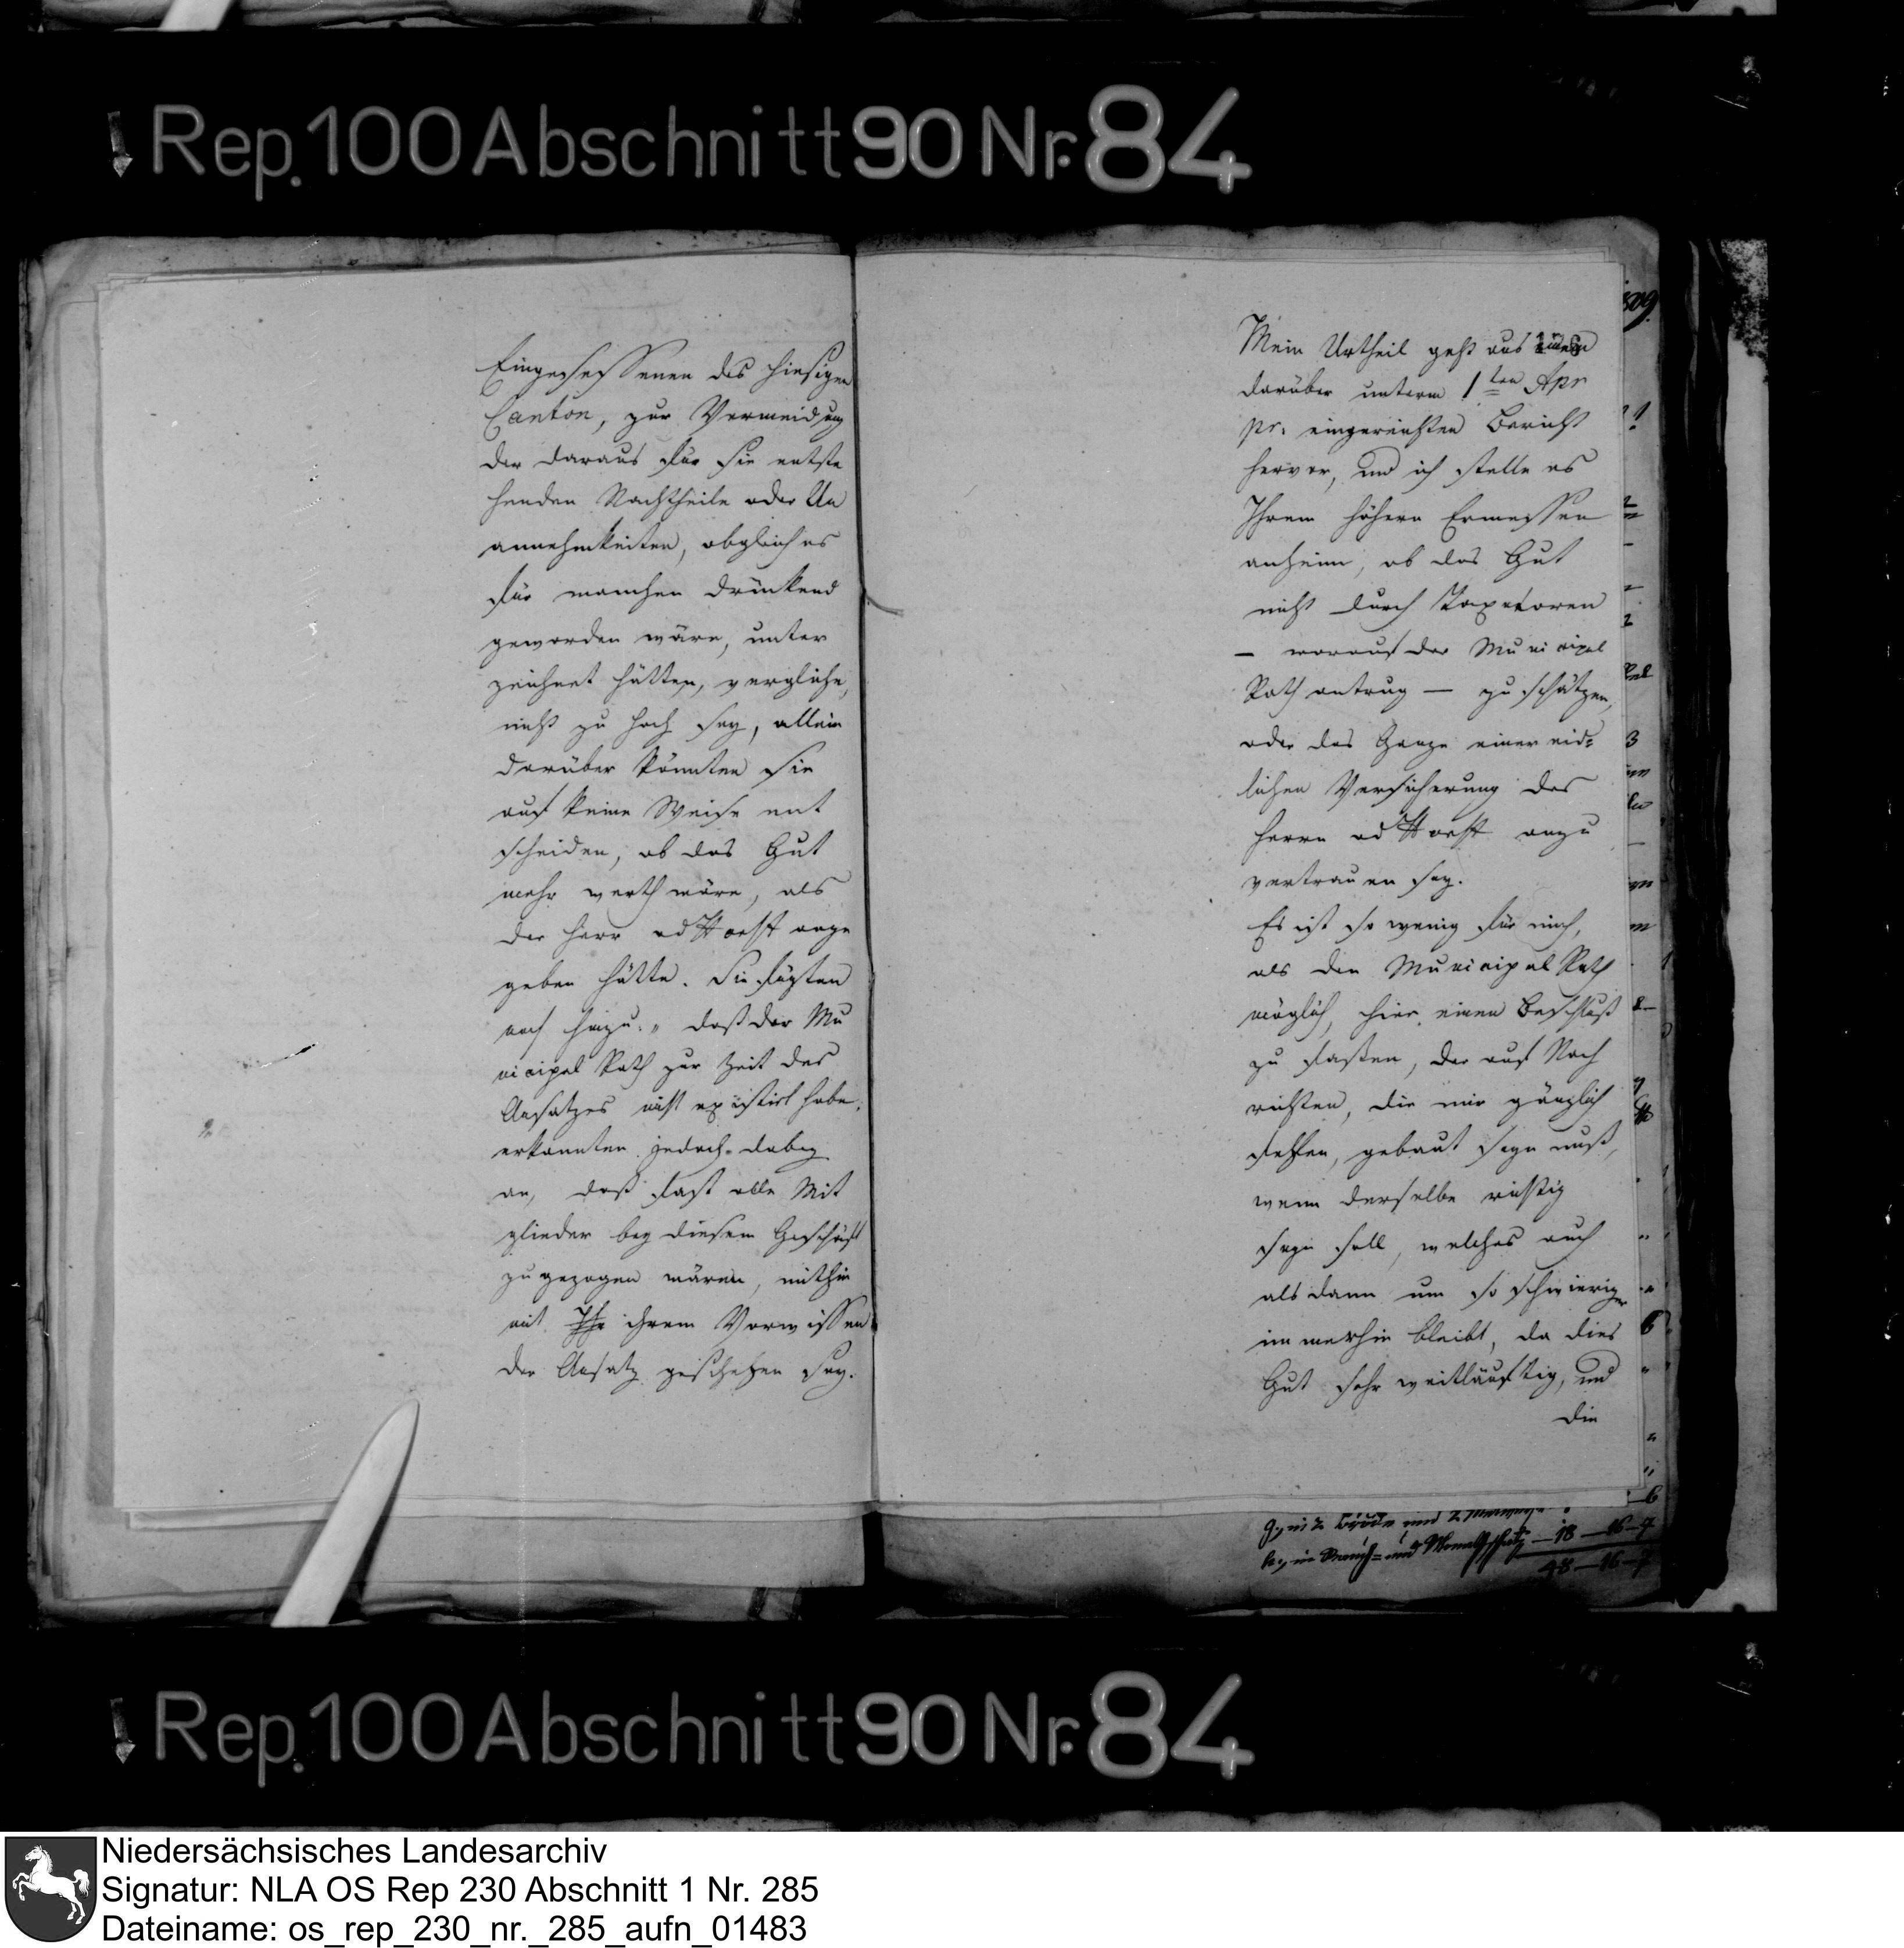 Rep. 100 Abschnitt 90 Nr. 84
Eingesessenen des hiesigen
Canton, zur Vermeidung
der daraus für sie entste
henden Nachtheile oder Un
annehmkeiten, obgleich es
für manchen drückend
geworden wäre, unter
zeichnet hätten, vergliche,
nicht zu hoch sey, allein
darüber könnten sie
auf keine Weise ent
scheiden, ob das Gut
mehr werth wäre, als
der Herr adHorst ange
geben hätte. Sie fügten
noch hinzu: daß der Mu
nicipal Rath zur Zeit des
Ansatzes nicht existirt habe,
erkannten jedoch dabey
an, daß fast alle Mit
glieder bey diesem Geschäft
zugezogen wären, mithin
mit ihrem Vorwissen
der Ansatz geschehen sey.
Mein Urtheil geht aus
darüber unterm 1ten Apr
pr. eingereichten Bericht
hervor, und ich stelle es
Ihrem höhern Ermessen
anheim, ob das Gut
nicht durch Taxatoren
– worauf der Municipal
Rath antrug – zu schätzen,
oder das Ganze einer eid-
lichen Versicherung des
Herrn adHorst anzu
vertrauen sey.
Es ist so wenig für mich,
als den Municipal Rath
möglich, hier einen Beschluß
zu faßen, der auf Nach
richten, die mir gänzlich
fehlen, gebaut seyn muß,
wenn derselbe richtig
seyn soll, welches auch
alsdann um so schwieriger
immerhin bleibt, da dies
Gut sehr weitläuftig, und
die
18 – 16 – 7
48 – 16 – 7
Rep. 100 Abschnitt 90 Nr. 84
Niedersächsisches Landesarchiv
Signatur: NLA OS Rep 230 Abschnitt 1 Nr. 285
Dateiname: os_rep_230_nr._285_aufn_01483